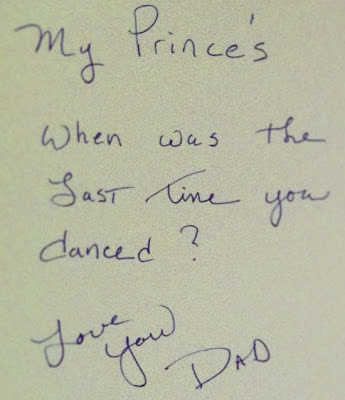 My Prince's
When was the
Last Time you
danced?
Love
you
DAD